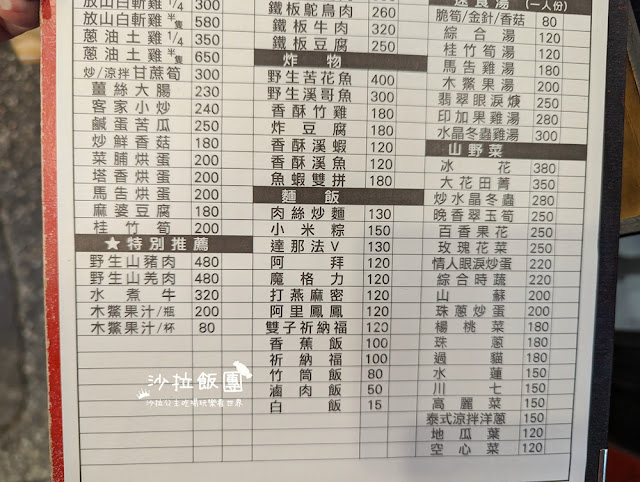 放山白斬雞 1/4 300
放山白斬雞 半隻 580
蔥油土雞 1/4 350
蔥油土雞 半隻 650
炒/涼拌甘蔗筍 300
薑絲大腸 230
客家小炒 240
鹹蛋苦瓜 250
炒鮮香菇 180
菜脯烘蛋 200
塔香烘蛋 200
馬告烘蛋 200
麻婆豆腐 180
桂竹筍 200
★特別推薦
野生山豬肉 480
野生山羌肉 480
水煮牛 320
木鱉果汁/瓶 200
木鱉果汁/杯 80
鐵板鴕鳥肉 260
鐵板牛肉 320
鐵板豆腐 250
炸物
野生苦花魚 400
野生溪哥魚 300
香酥竹雞 180
炸豆腐 180
香酥溪蝦 120
香酥溪魚 120
魚蝦雙拼 180
麵飯
肉絲炒麵 130
小米粽 150
達那法V 130
阿拜 120
魔格力 120
打燕麻密 120
阿里鳳鳳 120
雙子祈納福 120
香蕉飯 100
祈納福 100
竹筒飯 80
滷肉飯 50
白飯 15
速食湯 (一人份)
脆筍/金針/香菇 80
綜合湯 120
桂竹筍湯 120
馬告雞湯 180
木鱉果湯 200
翡翠眼淚煉 250
印加果雞湯 280
水晶冬蟲雞湯 300
山野菜
冰花 380
大花田菁 350
炒水晶冬蟲 280
晚香翠玉筍 250
百香果花 250
玫瑰花菜 250
情人眼淚炒蛋 220
綜合時蔬 220
山蘇 200
珠蔥炒蛋 200
楊桃菜 180
珠蔥 180
過貓 180
水蓮 150
川七 150
高麗菜 150
泰式涼拌洋蔥 150
地瓜葉 120
空心菜 120
沙拉飯團
沙拉公主吃喝玩樂看世界